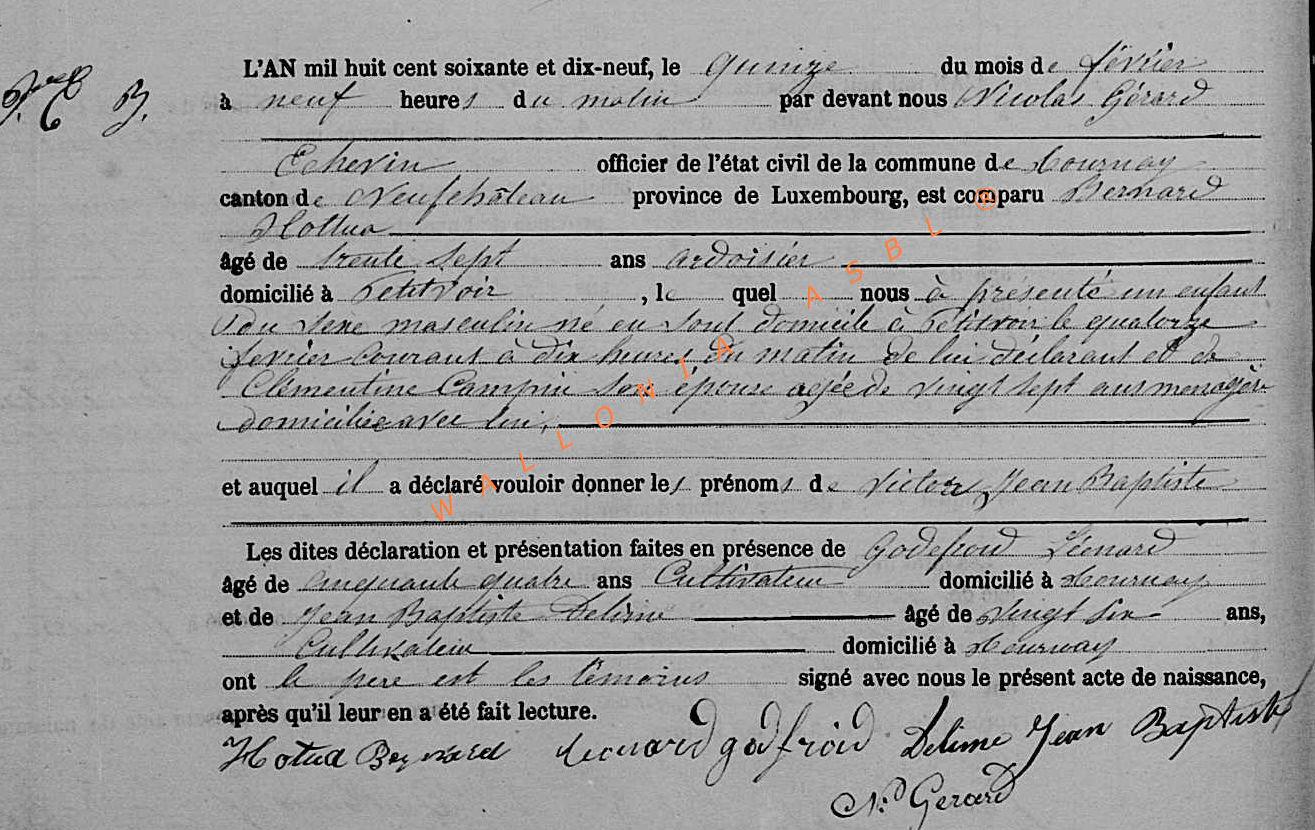 L'AN mil huit cent soixante et dix-neuf, le quinze du mois de février
B. à neuf heures du matin par devant nous Nicolas Gérard
Echevin officier de l'état civil de la commune de Tournay
canton de Neufchâteau province de Luxembourg, est comparu Bernard
Hottua
âgé de trente sept ans ardoisier
domicilié à Petitvoir, le quel nous à présenté un enfant
du sexe masculin né en sont domicile à Petitvoir le quatorze
fevrier Courant à dix heures du matin de lui déclarant et de
Clémentine Campin son épouse agée de vingt sept ans menagère
domiciliée avec lui,
et auquel il a déclaré vouloir donner les prénoms de Victor, Jean Baptiste
Les dites déclaration et présentation faites en présence de Godefroid Léonard
âgé de cinquante quatre ans Cultivateur domicilié à Tournay
et de Jean Baptiste Delime âgé de vingt six ans,
Cultivateur domicilié à Tournay
ont le pere est les témoins signé avec nous le présent acte de naissance,
après qu'il leur en a été fait lecture.
Hotua Bernard Leonard godfroid Delime Jean Baptiste
N. Gerard
WALLONIA ASBL ®